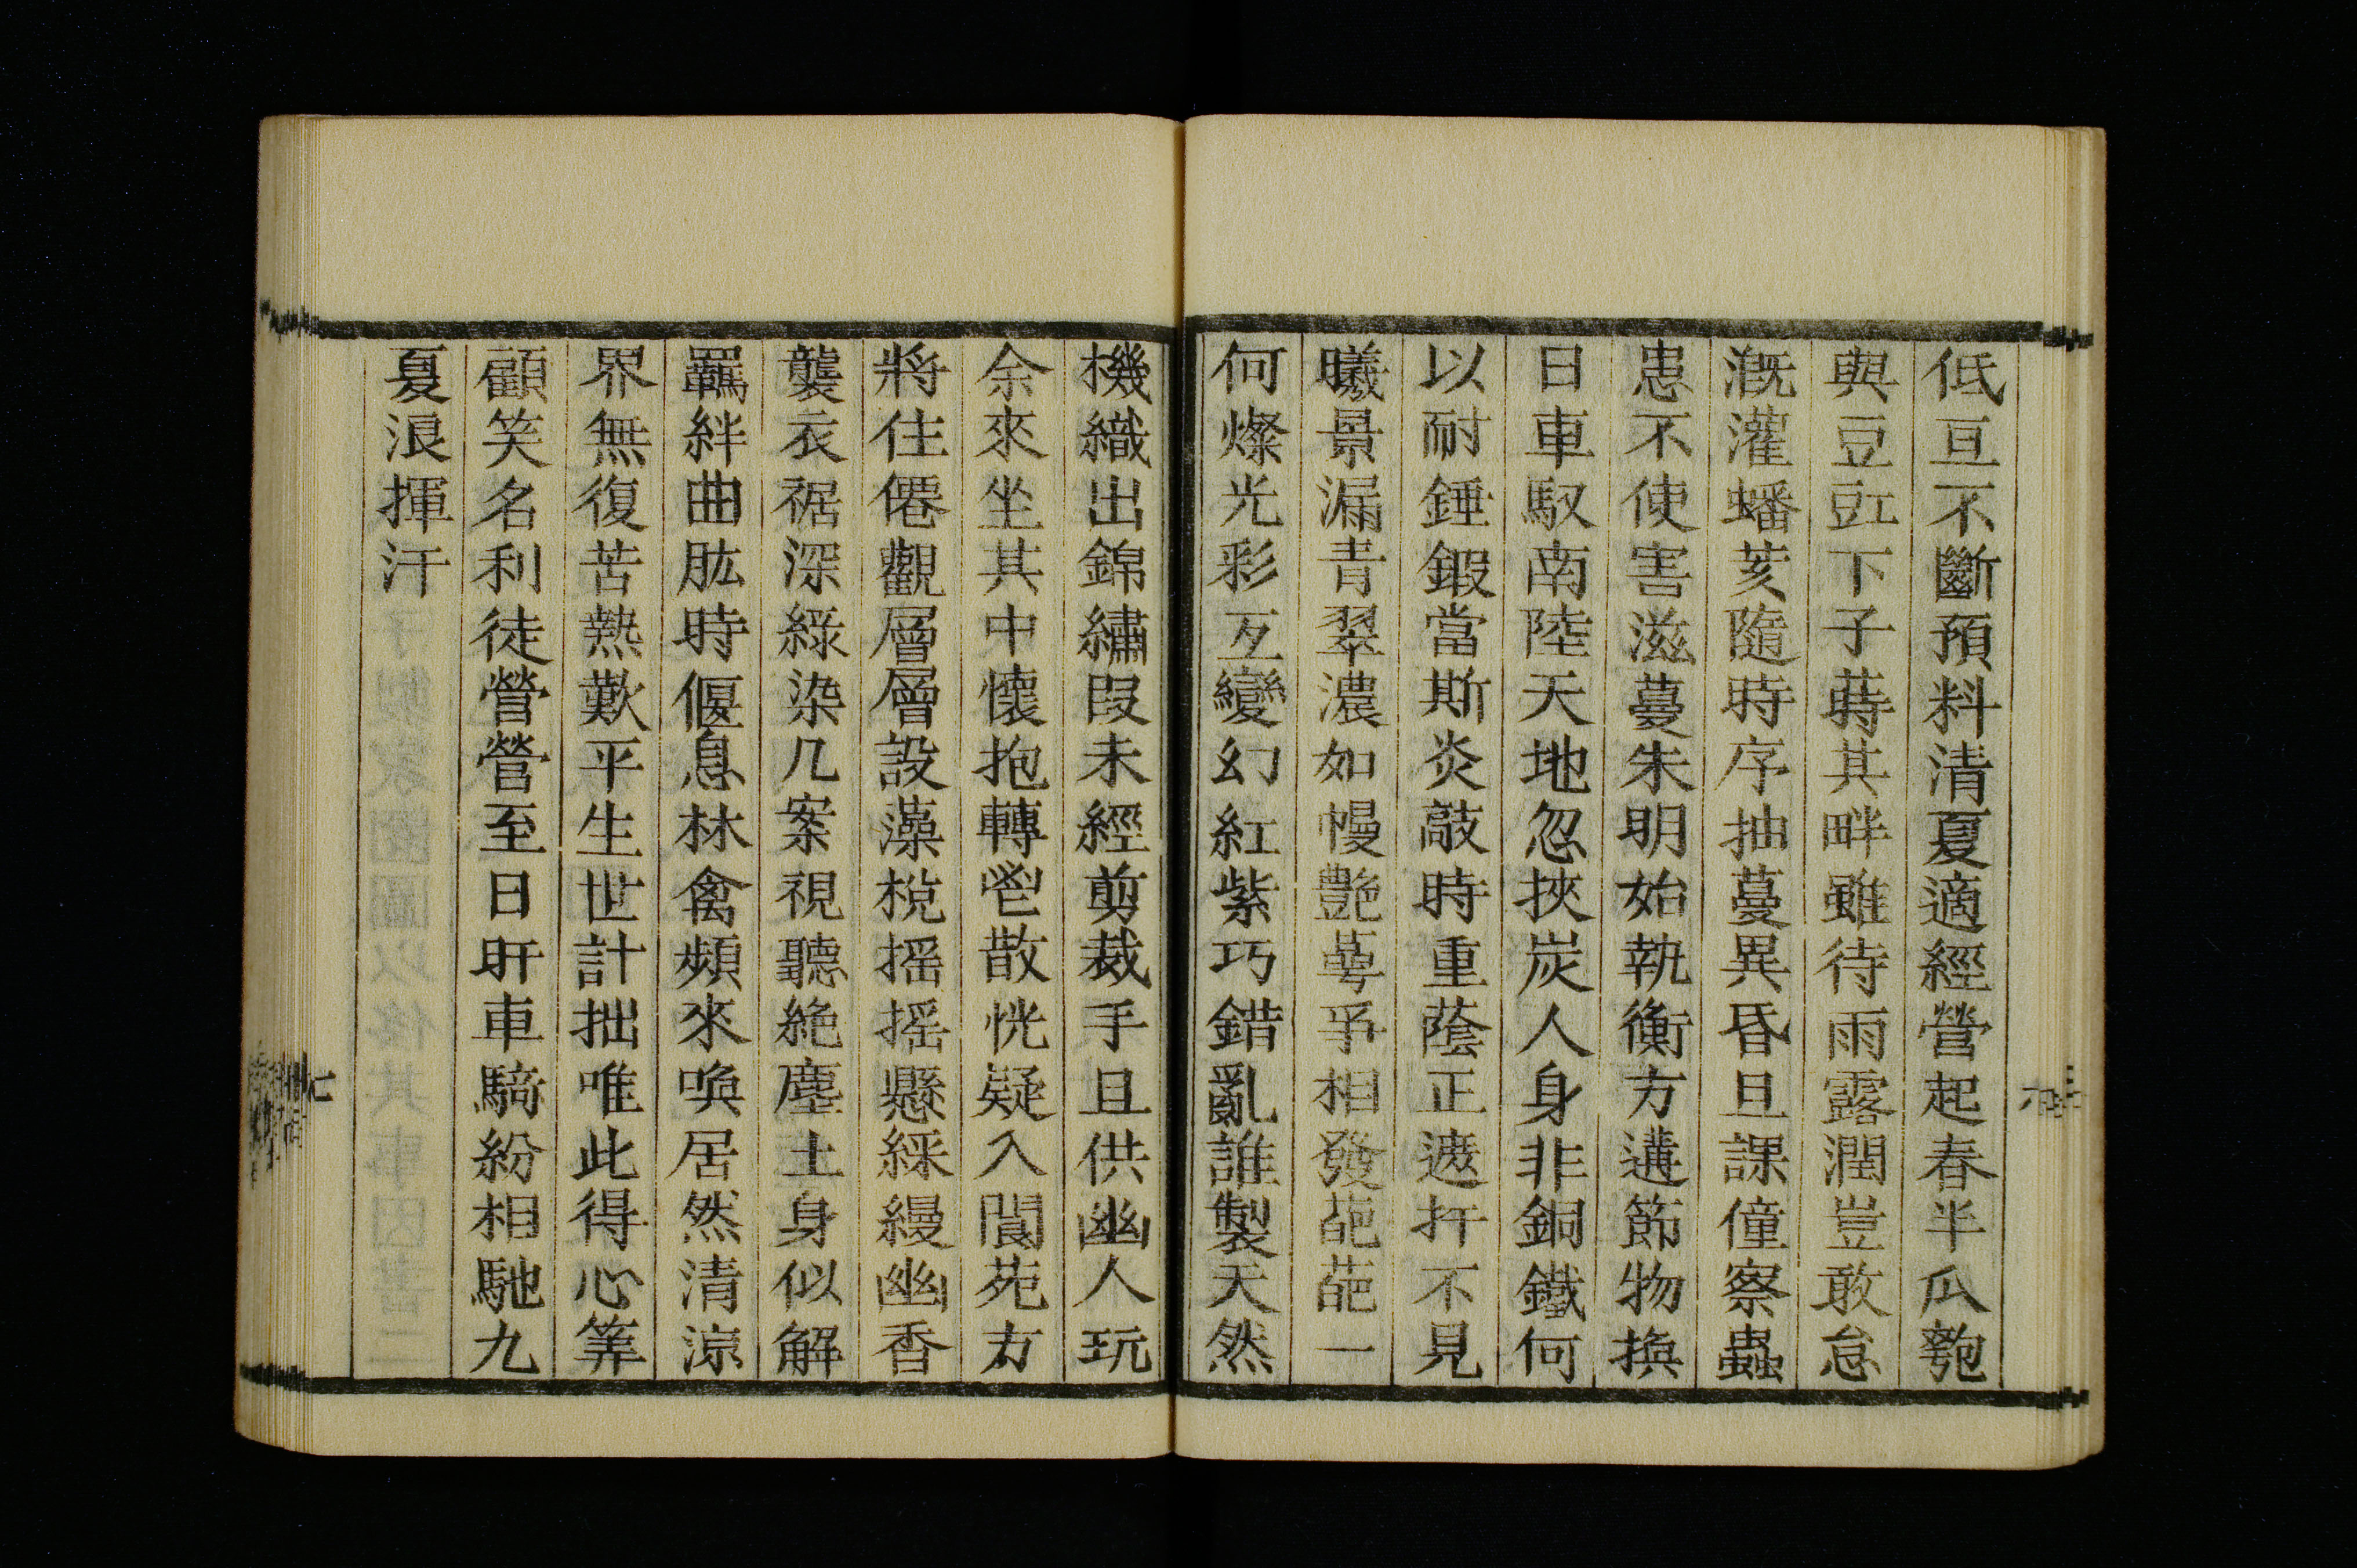 低亘不斷預料清夏適經營起春半瓜匏
與豆豇下子蒔其畔雖待雨露潤豈敢怠
漑灌蟠荄隨時序抽蔓異昏旦課僮察蟲
患不使害滋蔓朱明始執衡方遘節物換
日車馭南陸天地忽挾炭人身非銅鐵何
以耐錘鍜當斯炎敲時重蔭正遮扞不見
曦景漏青翠濃如幔艷萼爭相發葩葩一
何燦光彩互變幻紅紫巧錯亂誰製天然
機織出錦繡段未經剪裁手且供幽人玩
余來坐其中懷抱轉鬯散恍疑入閬苑方
將住僊觀層層設藻梲搖搖懸綵縵幽香
襲衣裾深綠染几案視聽絶塵土身似解
羈絆曲肱時偃息林禽頻來喚居然清涼
界無復苦熱歎平生世計拙唯此得心筭
顧笑名利徒營營至日旰車騎紛相馳九
夏浪揮汗